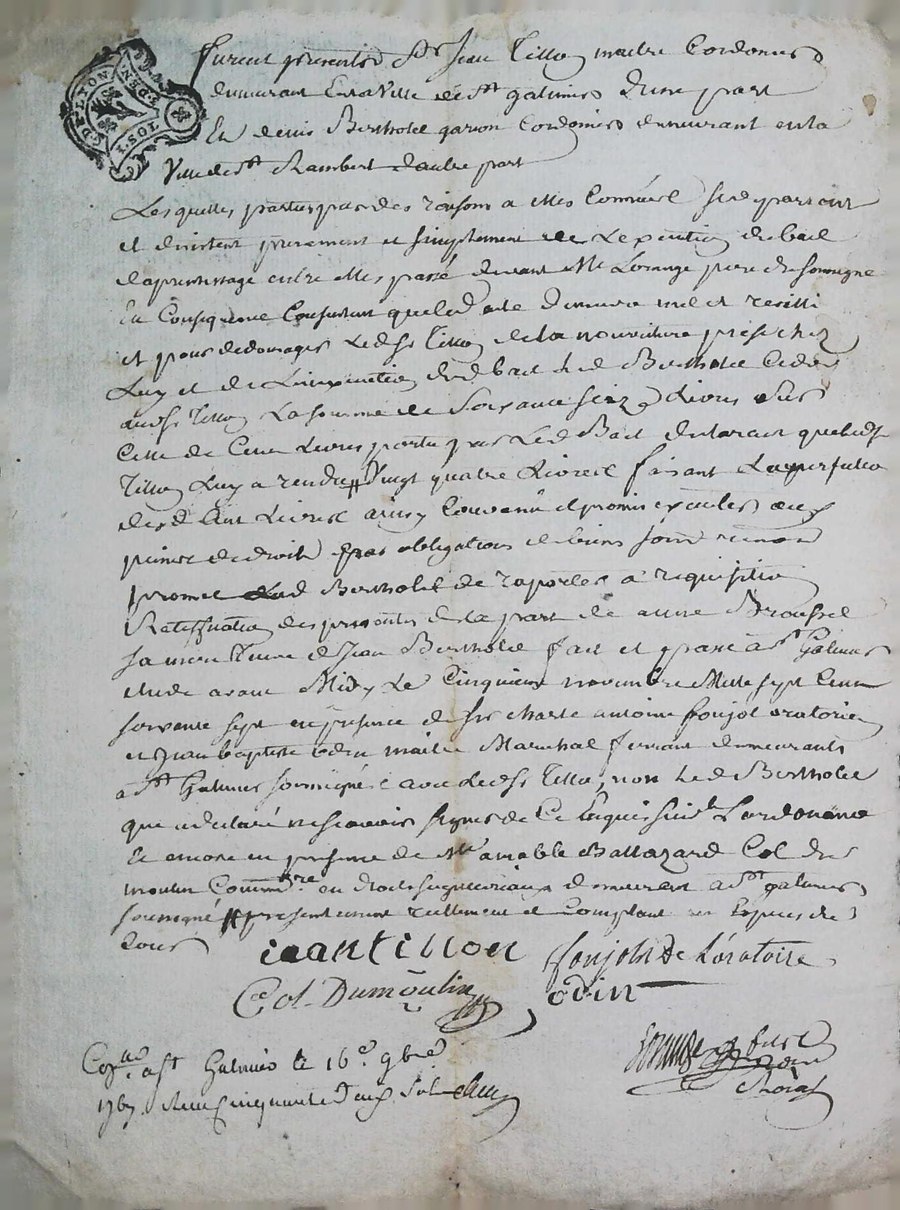 GEN. DE LYON
1. SOL
furent presents Sr Jean Tillon maitre Cordonier
demeurant En la Ville de St galmier d'une part
Et denis Bertholet garcon Cordonier demeurant en la
Ville de St Rambert d'autre part
Lesquelles parties pour des raisons a elles Connües se departent
et desistent purement et simplement de L'execution du bail
daprentissage entre elles passé devant Me Lorange pere du soussigne
En Consequence Consentent que led acte demeure nul et resilli
et pour dedomager Ledsr Tillon de la nouriture prise chez
Luy et de L'inexecution dud bail led Bertholet Cede
audsr Tillon La somme de Soixante seize Livres sur
Celle de Cent Livres portée par Led Bail declarant que ledsr
Tillon Luy a rendu Vingt quatre Livres faisant
desd Cent Livres ainsy Convenu et promis executer aux
peines de droit par obligations de biens
promet led Bertholet de raporter a requisition
Ratiffication des presentes de la part de anne Broussel
sa mere Veuve de Jean Bertholet fait et passé a St Galmier
etude avant Midy Le Cinquieme novembre Mille sept Cent
soixante sept en presence de sr Charle antoine foujol oratoire
et Jean baptiste odin maitre Marechal ferrant demeurants
a St Galmier soussignés avec ledsr Tillon, non led Bertholet
que a declaré ne scavoir signer de Ce Enquis suivt L'ordonance
Et encore en presence de Me amable Baltazard Col du
moulin Commre en droits seigneuriaux demeurant a St galmier
soussigné presentement reellement et Comptant en Especes de
Cours
ieantillon
foujols de L'oratoire
Col. Dumoulin
odin
Con.lle a St Galmier le 16e 9bre
1767 Reçu cinquante deux sols